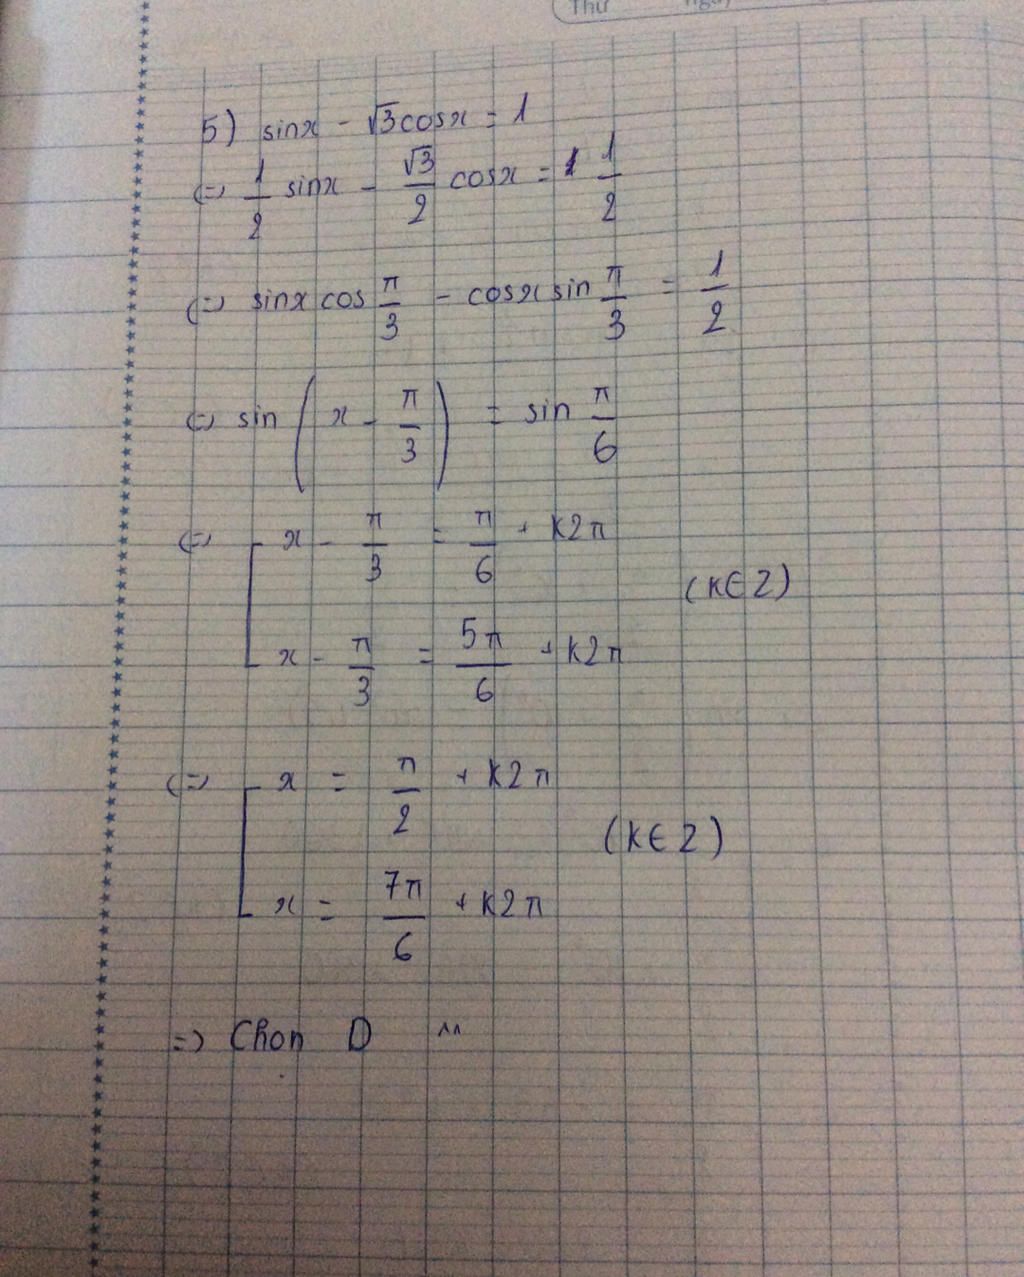 Thứ
5) sinx - √3cosx = 1
(=) 1/2 sinx - √3/2 cosx = 1/2
(=) sinx cos π/3 - cosx sin π/3 = 1/2
(=) sin ( x - π/3 ) = sin π/6
(=) [ x - π/3 = π/6 + k2π
(k∈Z)
x - π/3 = 5π/6 + k2π
(=) [ x = π/2 + k2π
(k∈Z)
x = 7π/6 + k2π
=) Chọn D ^^